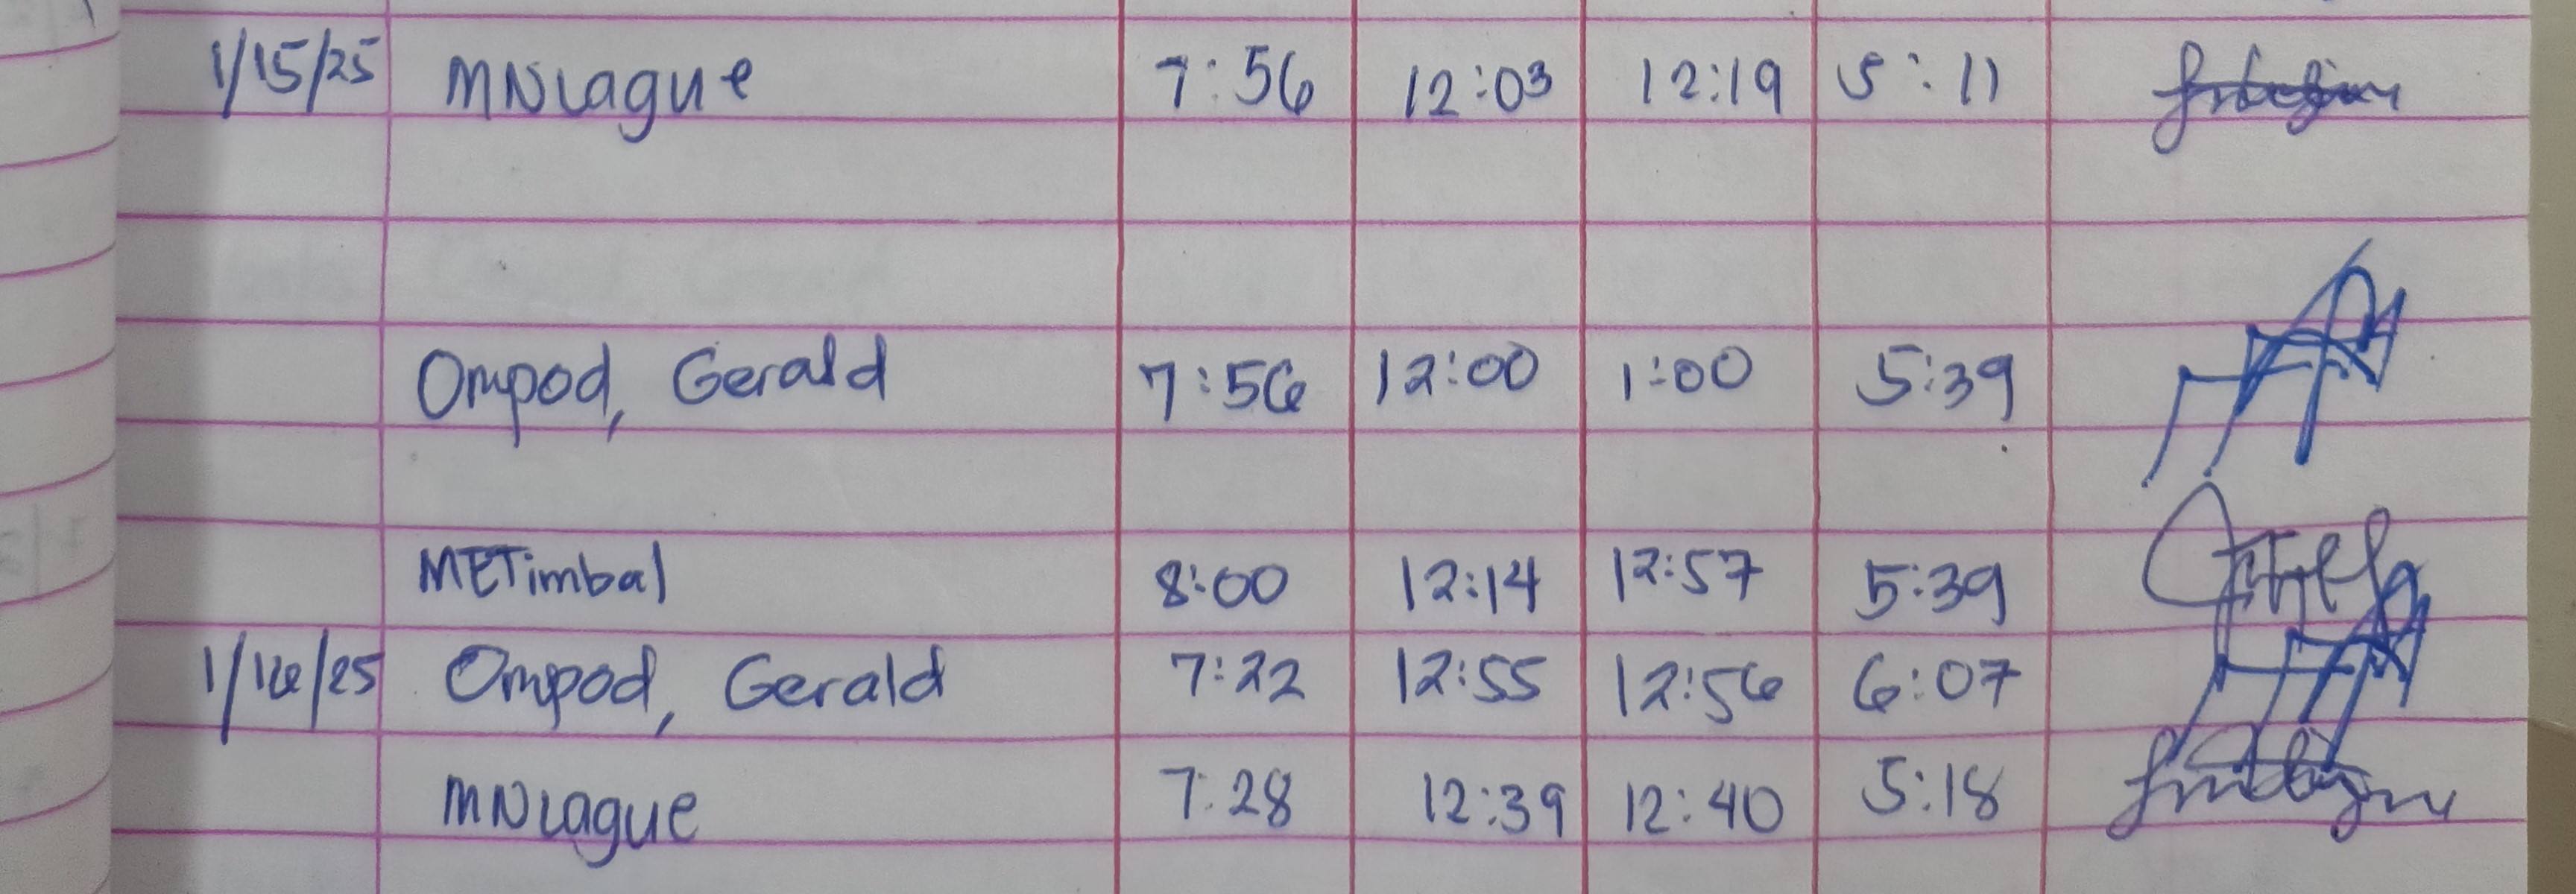 1/15/25 MNLague 7:56 12:03 12:19 5:11
Ompod, Gerald 7:56 12:00 1:00 5:39
METimbal 8:00 12:14 12:57 5:39
1/16/25 Ompod, Gerald 7:22 12:55 12:56 6:07
MNLague 7:28 12:39 12:40 5:18